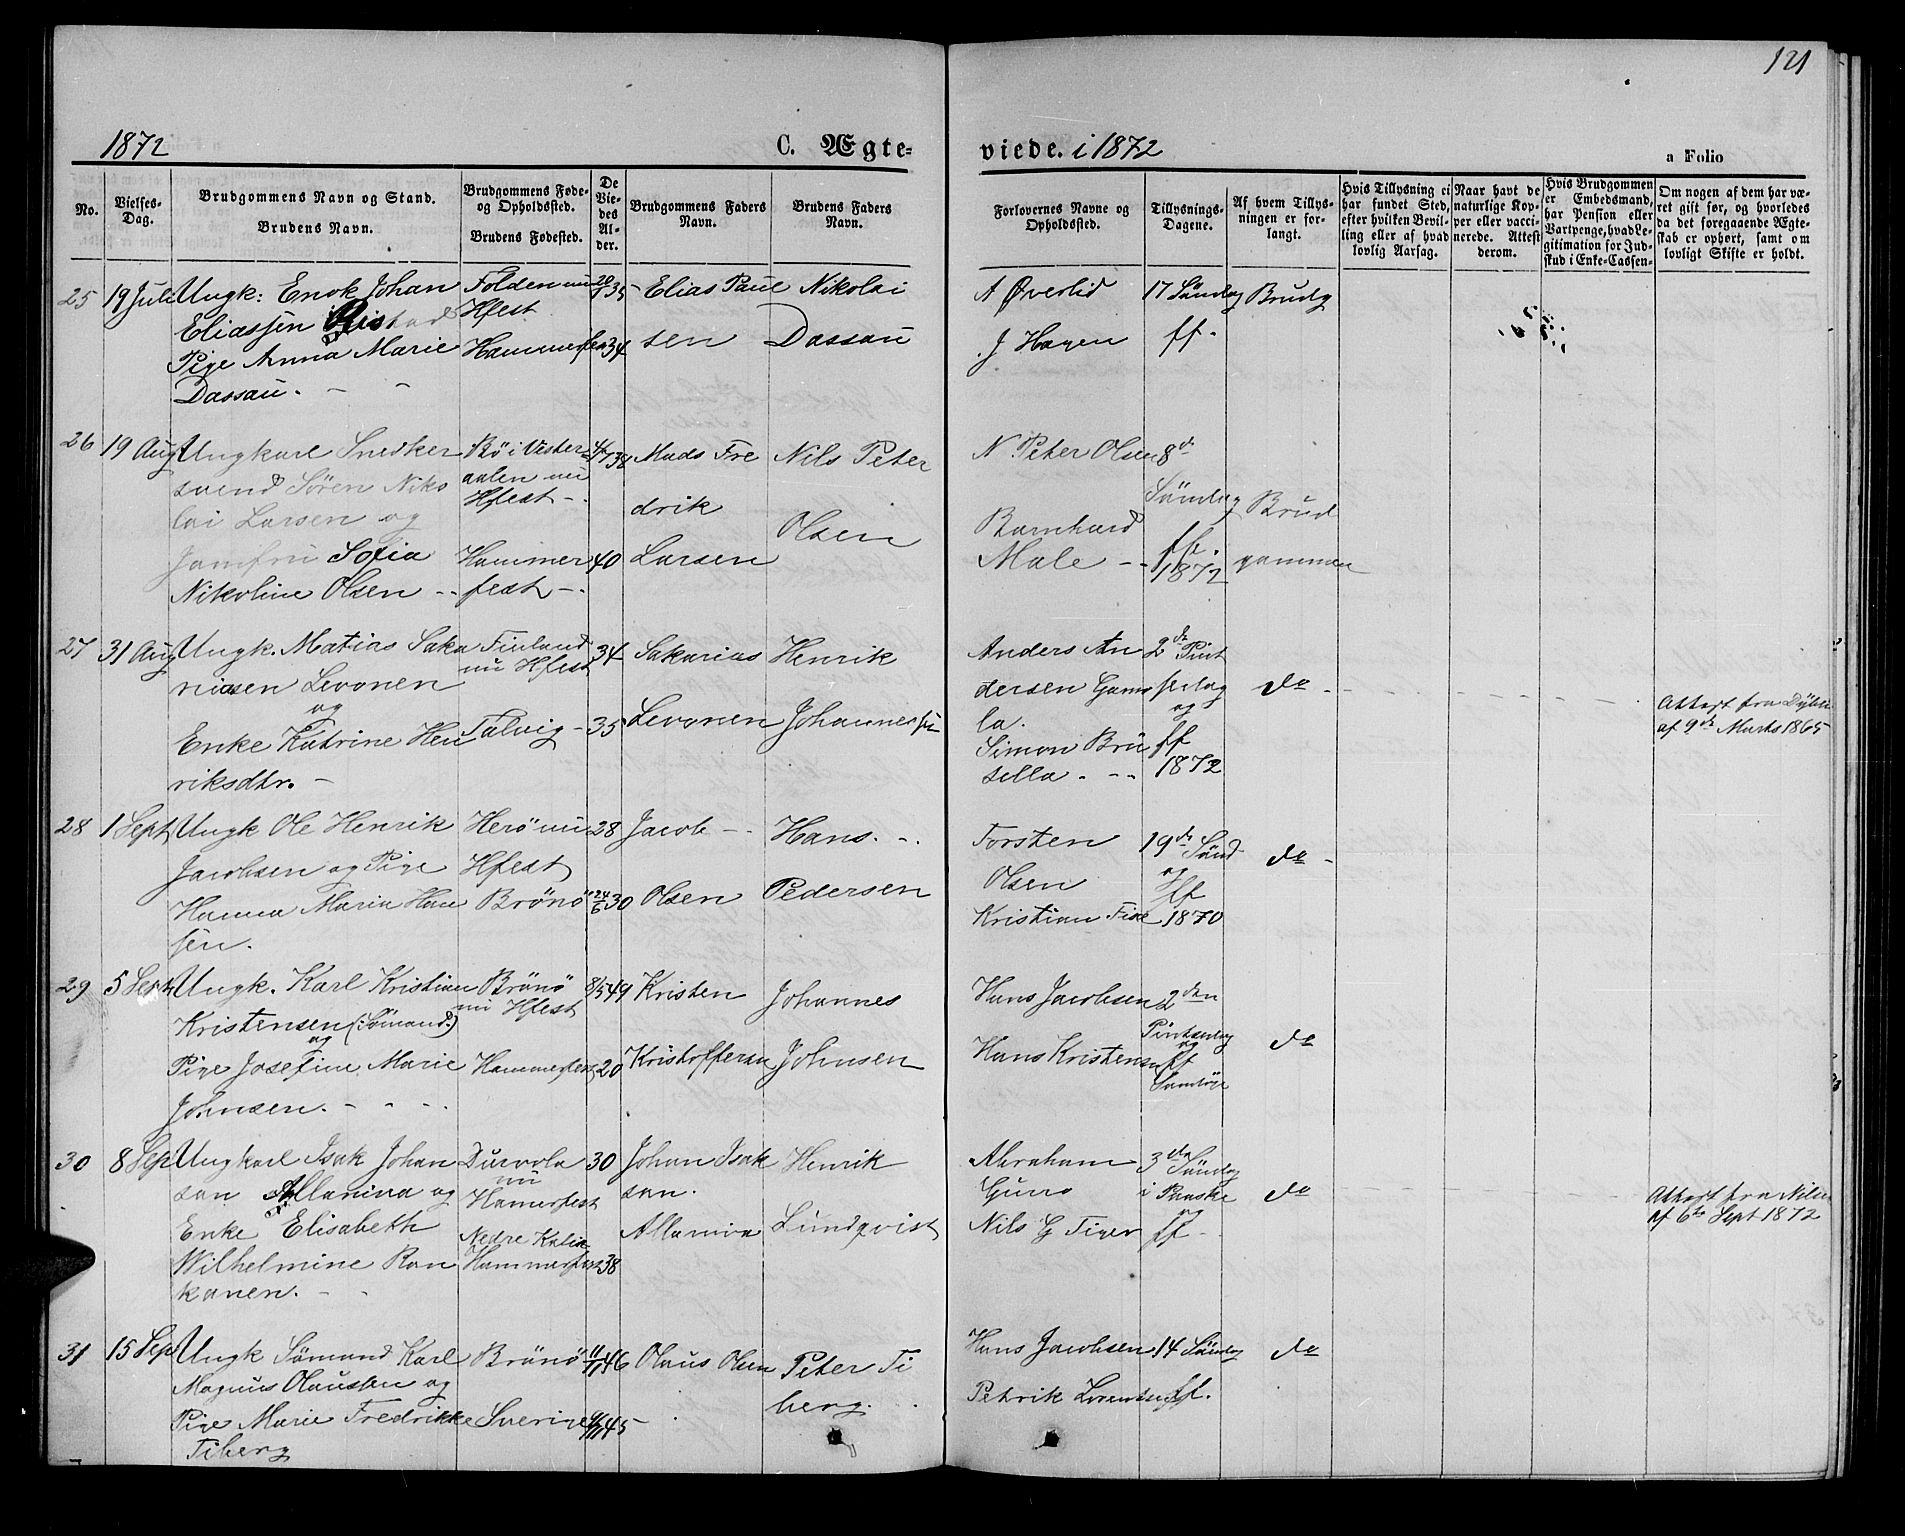 121
1872
C. Ægte-
viede. i 1872
a Folio
No.
Vielses-
Dag.
Brudgommens Navn og Stand.
Brudens Navn.
Brudgommens Føde-
og Opholdssted.
Brudens Fødested.
De
Vie-
des
Al-
der.
Brudgommens Faders
Navn.
Brudens Faders
Navn.
Forlovernes Navne og
Opholdssted.
Tillysnings-
Dagene.
Af hvem Tillys-
ningen er for-
langt.
Hvis Tillysning ei
har fundet Sted,
efter hvilken Bevil-
ling eller af hvad
lovlig Aarsag.
Naar havt de
naturlige Kop-
per eller vacci-
nerede. Attest
derom.
Hvis Brudgommen
er Embedsmand,
har Pension eller
Vartpenge, hvad Le-
gitimation for Ind-
skud i Enke-Cassen-
Om nogen af dem har væ-
ret gift før, og hvorledes
da det foregaaende Ægte-
skab er ophørt, samt om
lovligt Skifte er holdt.
25 19 Juli Ungk: Enok Johan
Eliassen
Pige Anna Marie
Dassau. - -
Folden nu
Hfest
Hammerfest
35
34
Elias Paul
sen
Nikolai
Dassau
A Øverlid
J Hagen
17 Søndag
ff.
Brudg
26 19 Aug Ungkarl Snedker
svend Sören Niko
lai Larsen og
Jomfru Sofia
Nikoline Olsen --
Bö i Vester
aalen nu
Hfest -
Hammer
fest -
38
40
Mads Fre
drik
Larsen
Nils Peter
Olsen
N. Peter Olsen
Barnhard
Male --
8de
Söndag
ff.
1872
Brud
gommen
27 31 Aug Ungk. Matias Saka
riasen Levonen
og
Enke Katrine Hen
riksdtr. -
Finland
nu Hfest
Talvig -
34
35
Sakarias
Levonen
Henrik
Johannessen
Anders An
dersen Gams
la.
Simon Brü
sella. --
2de Pint
sedag
og
ff
1872
do -
Attest fra
af 9de Marts 1865
28 1 Sept Ungk Ole Henrik
Jacobsen og Pige
Hanna Maria Han
sen.
Herö nu
Hfest
Brönö
28
24/6 30
Jacob --
Olsen
Hans. -.
Pedersen
Torsten
Olsen
Kristian Fixe
19de Sönd
og
ff
1870
do -
29 5 Sept Ungk. Karl Kristian
Kristensen (:Sömand:)
og
Pige Josefine Marie
Johnsen. - - -
Brönö
nu Hfest
Hammerfest
8/5 49
20
Kristen
Kristoffersen
Johannes
Johnsen
Hans Jacobsen
Hans Kristensen
2den
Pintsedag
og
ff
Søndage
do
30 8 Sep Ungkarl Isak Johan
san Allaniva og
Enke Elisabeth
Wilhelmine Ran
kanen. - -
nu
Hamerfest
Nedre Kalix
Hammerfest
30
38
Johan Isak
san.
Allaniva
Henrik
Lundqvist
Abraham
Guro
Nils G Tiger
3de Söndag
i Paaske
og
ff -
do
Attest fra
af 6te Sept 1872
31 15 Sep Ungk Sömand Karl
Magnus Olaussen og
Pige Marie Fredrikke
Tiberg
Brönö
Sverige
11/11 46
9/11 45
Olaus Olsen
-
Peter Ti
berg.
Hans Jacobsen
Petrik Lorentsen
14 Söndag
ff.
do